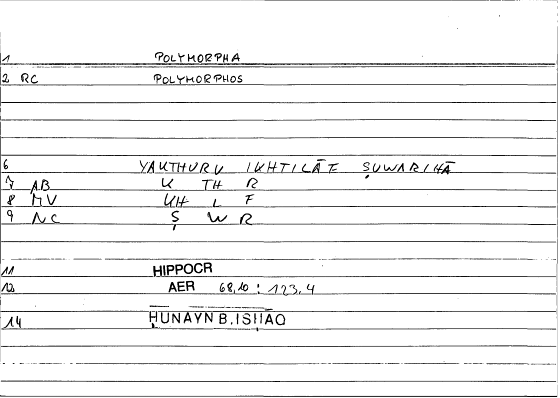 1 POLYMORPHA
2 RC POLYMORPHOS
6 YAKTHURU IKHTILĀF ṢUWARIHĀ
7 AB K TH R
8 MV KH L F
9 NC Ṣ W R
11 HIPPOCR
12 AER 68,10 : 123,4
14 ḤUNAYN B.ISḤĀQ